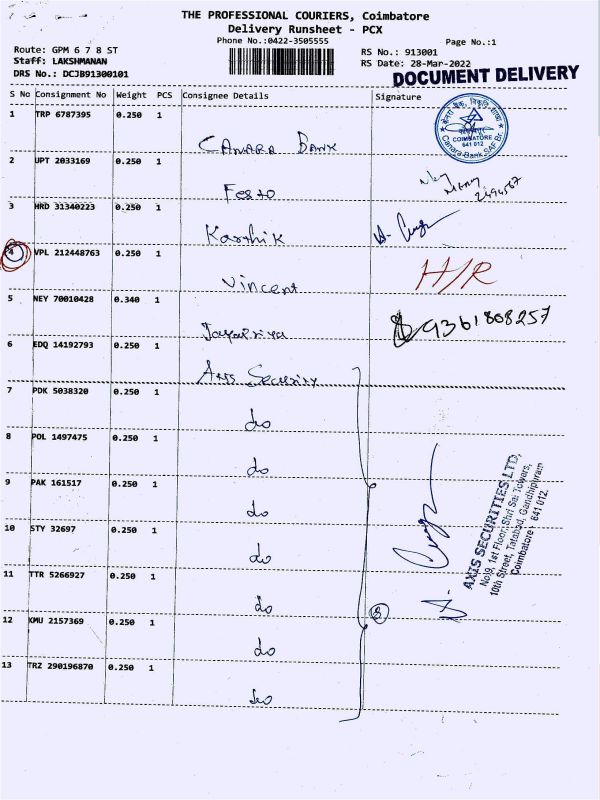 THE PROFESSIONAL COURIERS, Coimbatore
Delivery Runsheet - PCX
Phone No.:0422-3505555
Page No.:1
Route: GPM 6 7 8 ST
RS No.: 913001
Staff: LAKSHMANAN
RS Date: 28-Mar-2022
DRS No.: DCJB91300101
DOCUMENT DELIVERY
S No Consignment No Weight PCS Consignee Details Signature
1 TRP 6787395 0.250 1 CANARA BANK
COIMBATORE
641 012
Canara Bank SAF Br.
2 UPT 2033169 0.250 1 Festo
3 HRD 31340223 0.250 1 Karthik
4 VPL 212448763 0.250 1 Vincent H/R
5 NEY 70010428 0.340 1 Jayapriya 9361808257
6 EDQ 14192793 0.250 1 Axis Security
7 PDK 5038320 0.250 1 do
8 POL 1497475 0.250 1 do
9 PAK 161517 0.250 1 do
10 STY 32697 0.250 1 do
11 TTR 5266927 0.250 1 do
12 KMU 2157369 0.250 1 do
13 TRZ 290196870 0.250 1 do
8
AXIS SECURITIES LTD,
No.9, 1st Floor, Shri Sai Towers,
10th Street, Tatabad, Gandhipuram
Coimbatore - 641 012.